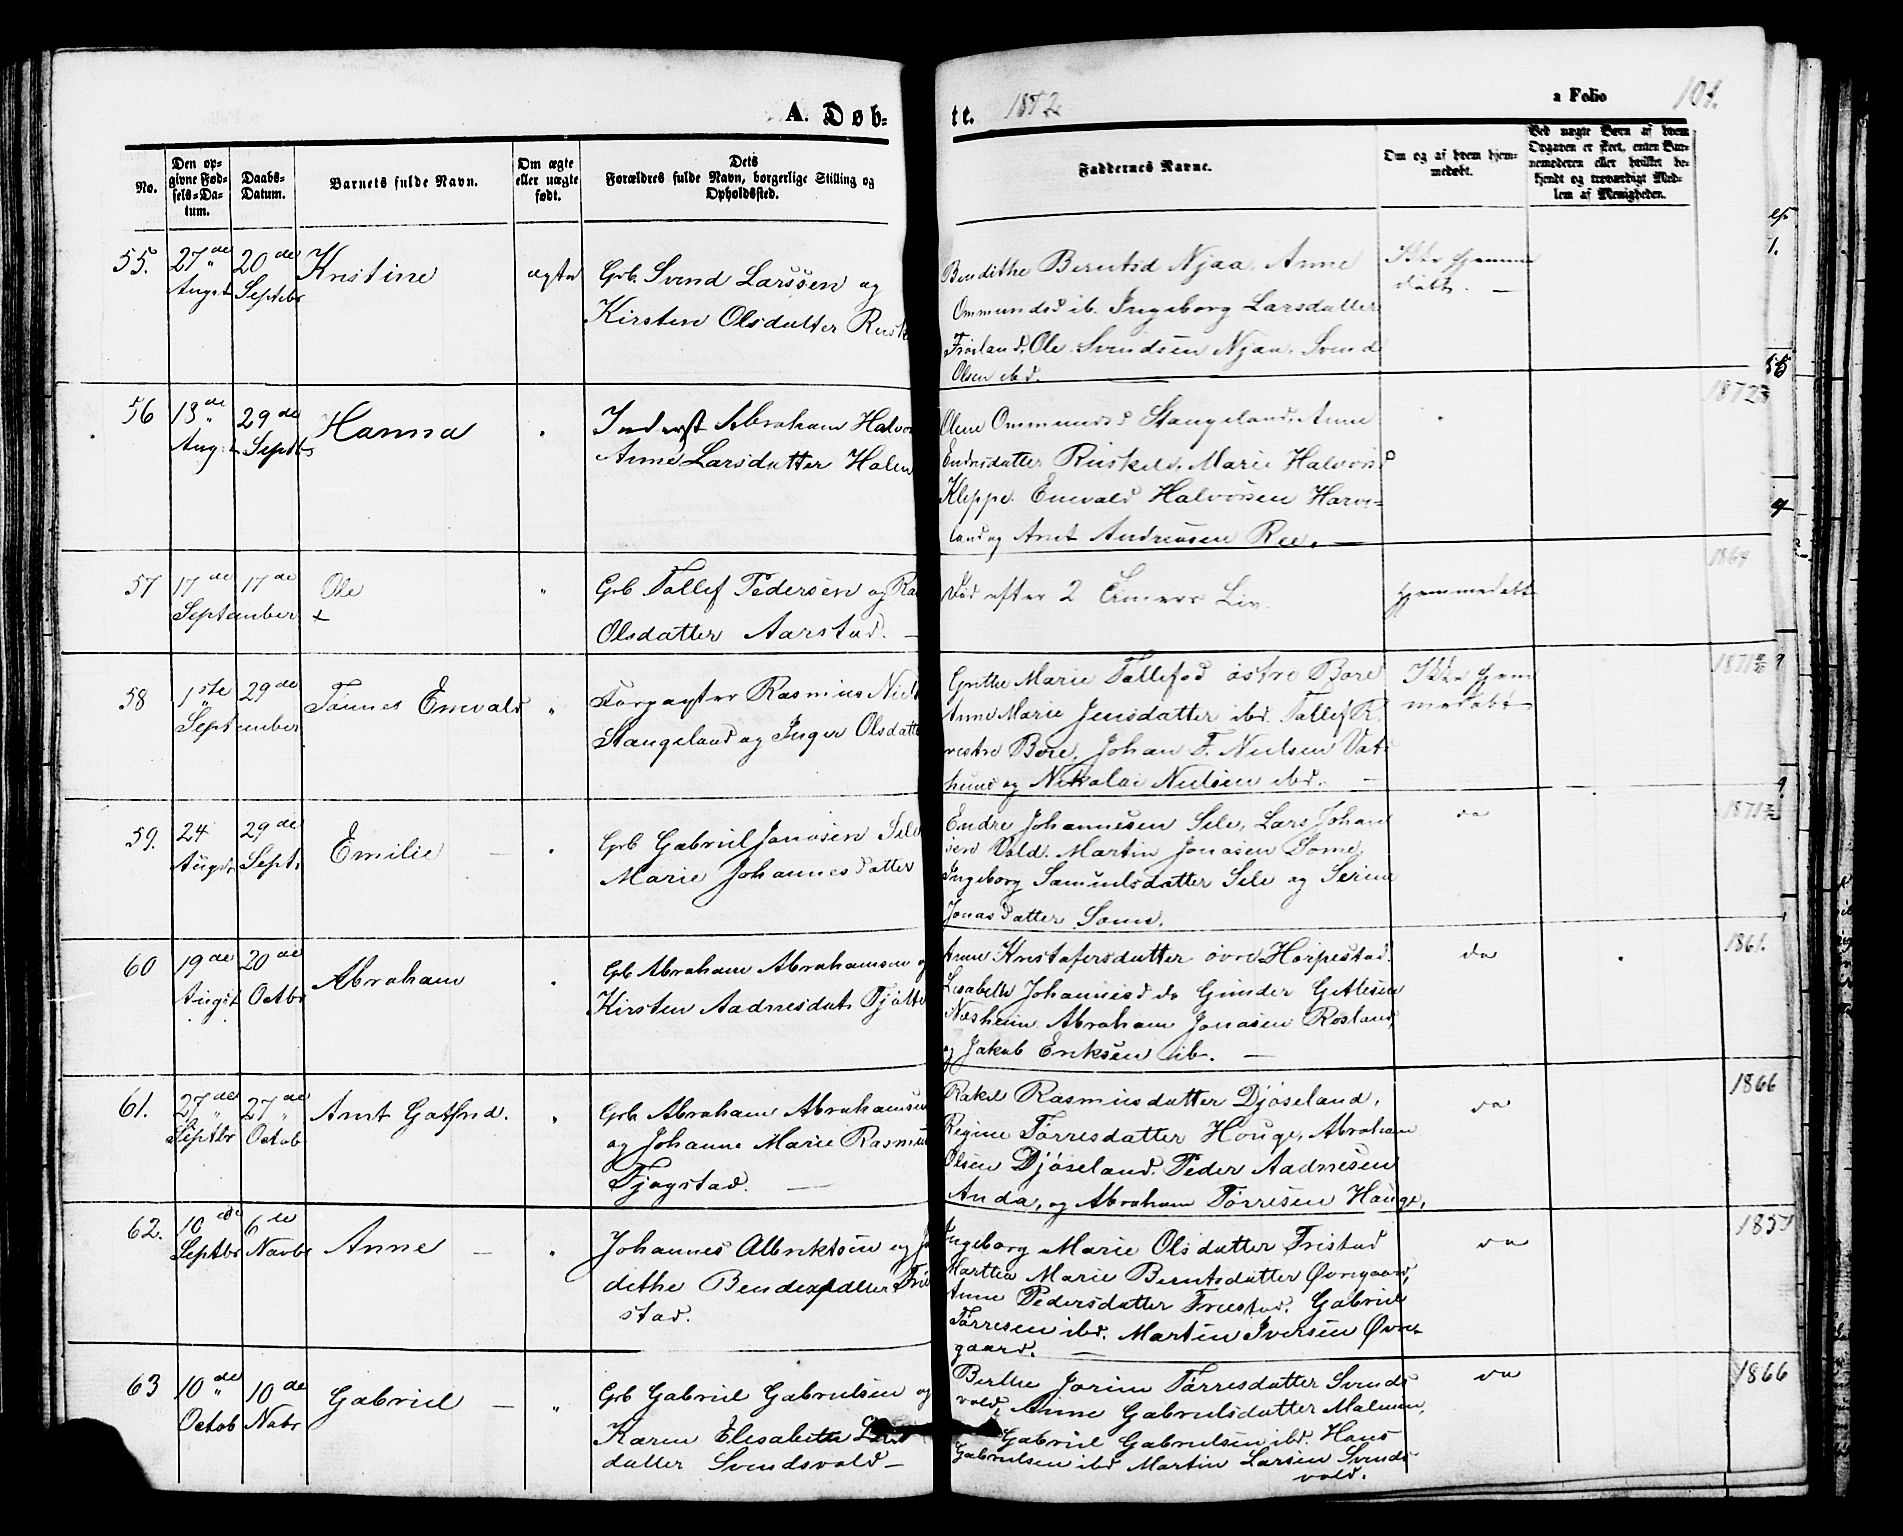 A. Døb-
te. 1872
a Folio 101.
No.
Den op-
givne Fød-
sels-Da-
tum.
Daabs-
Datum.
Barnets fulde Navn.
Om ægte
eller uægte
født.
Dets
Forældres fulde Navn, borgerlige Stilling og
Opholdssted.
Faddernes Navne.
Om og af hvem hjem-
medøbt.
Ved uægte Børn af hvem
Opgaven er skeet, enten Bar-
nemoderen eller hvilket be-
kjendt og troværdigt Med-
lem af Menigheden.
55. 27de Augst 20de Septbr Kristine ægte
Grb. Svend Larssen og
Kirsten Olsdatter
Bendithe Berntsd Njaa, Anne
Ommundsd ib. Ingeborg Larsdatter
Frøiland, Ole Svendsen Njaa, Svend
Olsen ibd.
Ikke hjemme
døbt. —
56 13de Aug. 29de Septbr Hanna "
Inderst Abraham
Anne Larsdatter
Olene Ommundsd Stangeland, Anne
Endresdatter Riskeld, Marie Halvorsd
Kleppe. Enevald Halvorsen Harve-
land og Arnt Andreasen Ree. —
1872
57 17de 17de September Ole +
"
Grb Tollef Pedersen og
Olsdatter Aarstad. —
Død efter 2 Timers Liv.
hjemmedøbt
1864
58 1ste 29de September Tønnes Enevald "
Forpagter Rasmus
Stangeland og Inger Olsdatter
Grethe Marie Tollefsd østre Bore
Anne Marie Jensdatter ibd. Tollef R.
vestre Bore, Johan T. Nielsen Vat-
hund og Nikolai Nielsen ibd. —
Ikke hjem
medøbt
1871
59. 24 Augst. 29de Septr. Emilie — "
Grb Gabriel Jonasen Sele
Marie Johannesdatter
Endre Johannesen Sele, Lars Johan
sen Vold. Martin Jonasen Some,
Ingeborg Samuelsdatter Sele og Serine
Jonasdatter Some.
do
1871
60 19de Augst 20de Octbr Abraham "
Grb Abraham Abrahamsen og
Kirsten Aadnesdat. Tjøtte
Anne Kristofersdatter øvre Horpestad.
Lisabeth Johannesd do Gunder Gittlesen
Næsheim Abraham Jonasen Rosland,
og Jakob Eriksen ib. —
do
1861.
61. 27de Septbr 27de Octob Arnt Gotfred. "
Grb Abraham Abrahamsen
og Johanne Marie
Tjøgstad. —
Rakel Rasmusdatter Djøseland,
Regine Tørresdatter Houge, Abraham
Olsen Djøseland. Peder Aadnesen
Anda, og Abraham Tørresen Houge,
do
1866
62. 10de Septbr 6te Novbr Anne — "
Johannes Albriktsen og
dithe
stad.
Ingeborg Marie Olsdatter Fristad
Martha Marie Berntsdatter Øvregaard,
Anne Pedersdatter Friestad. Gabriel
Tørresen ibd. Martin Iversen Øvre-
gaard. —
do
63 10de Octob 10de Nobr Gabriel — "
Grb Gabriel Gabrielsen og
Karen Elisabeth
datter Svendsvold —
Berthe Jorine Tørresdatter Svends
vold, Anne Gabrielsdatter Malmin,
Gabriel Gabrielsen ibd. Hans
Gabrielsen ibd Martin Larsen Svends
vold.
do
1866